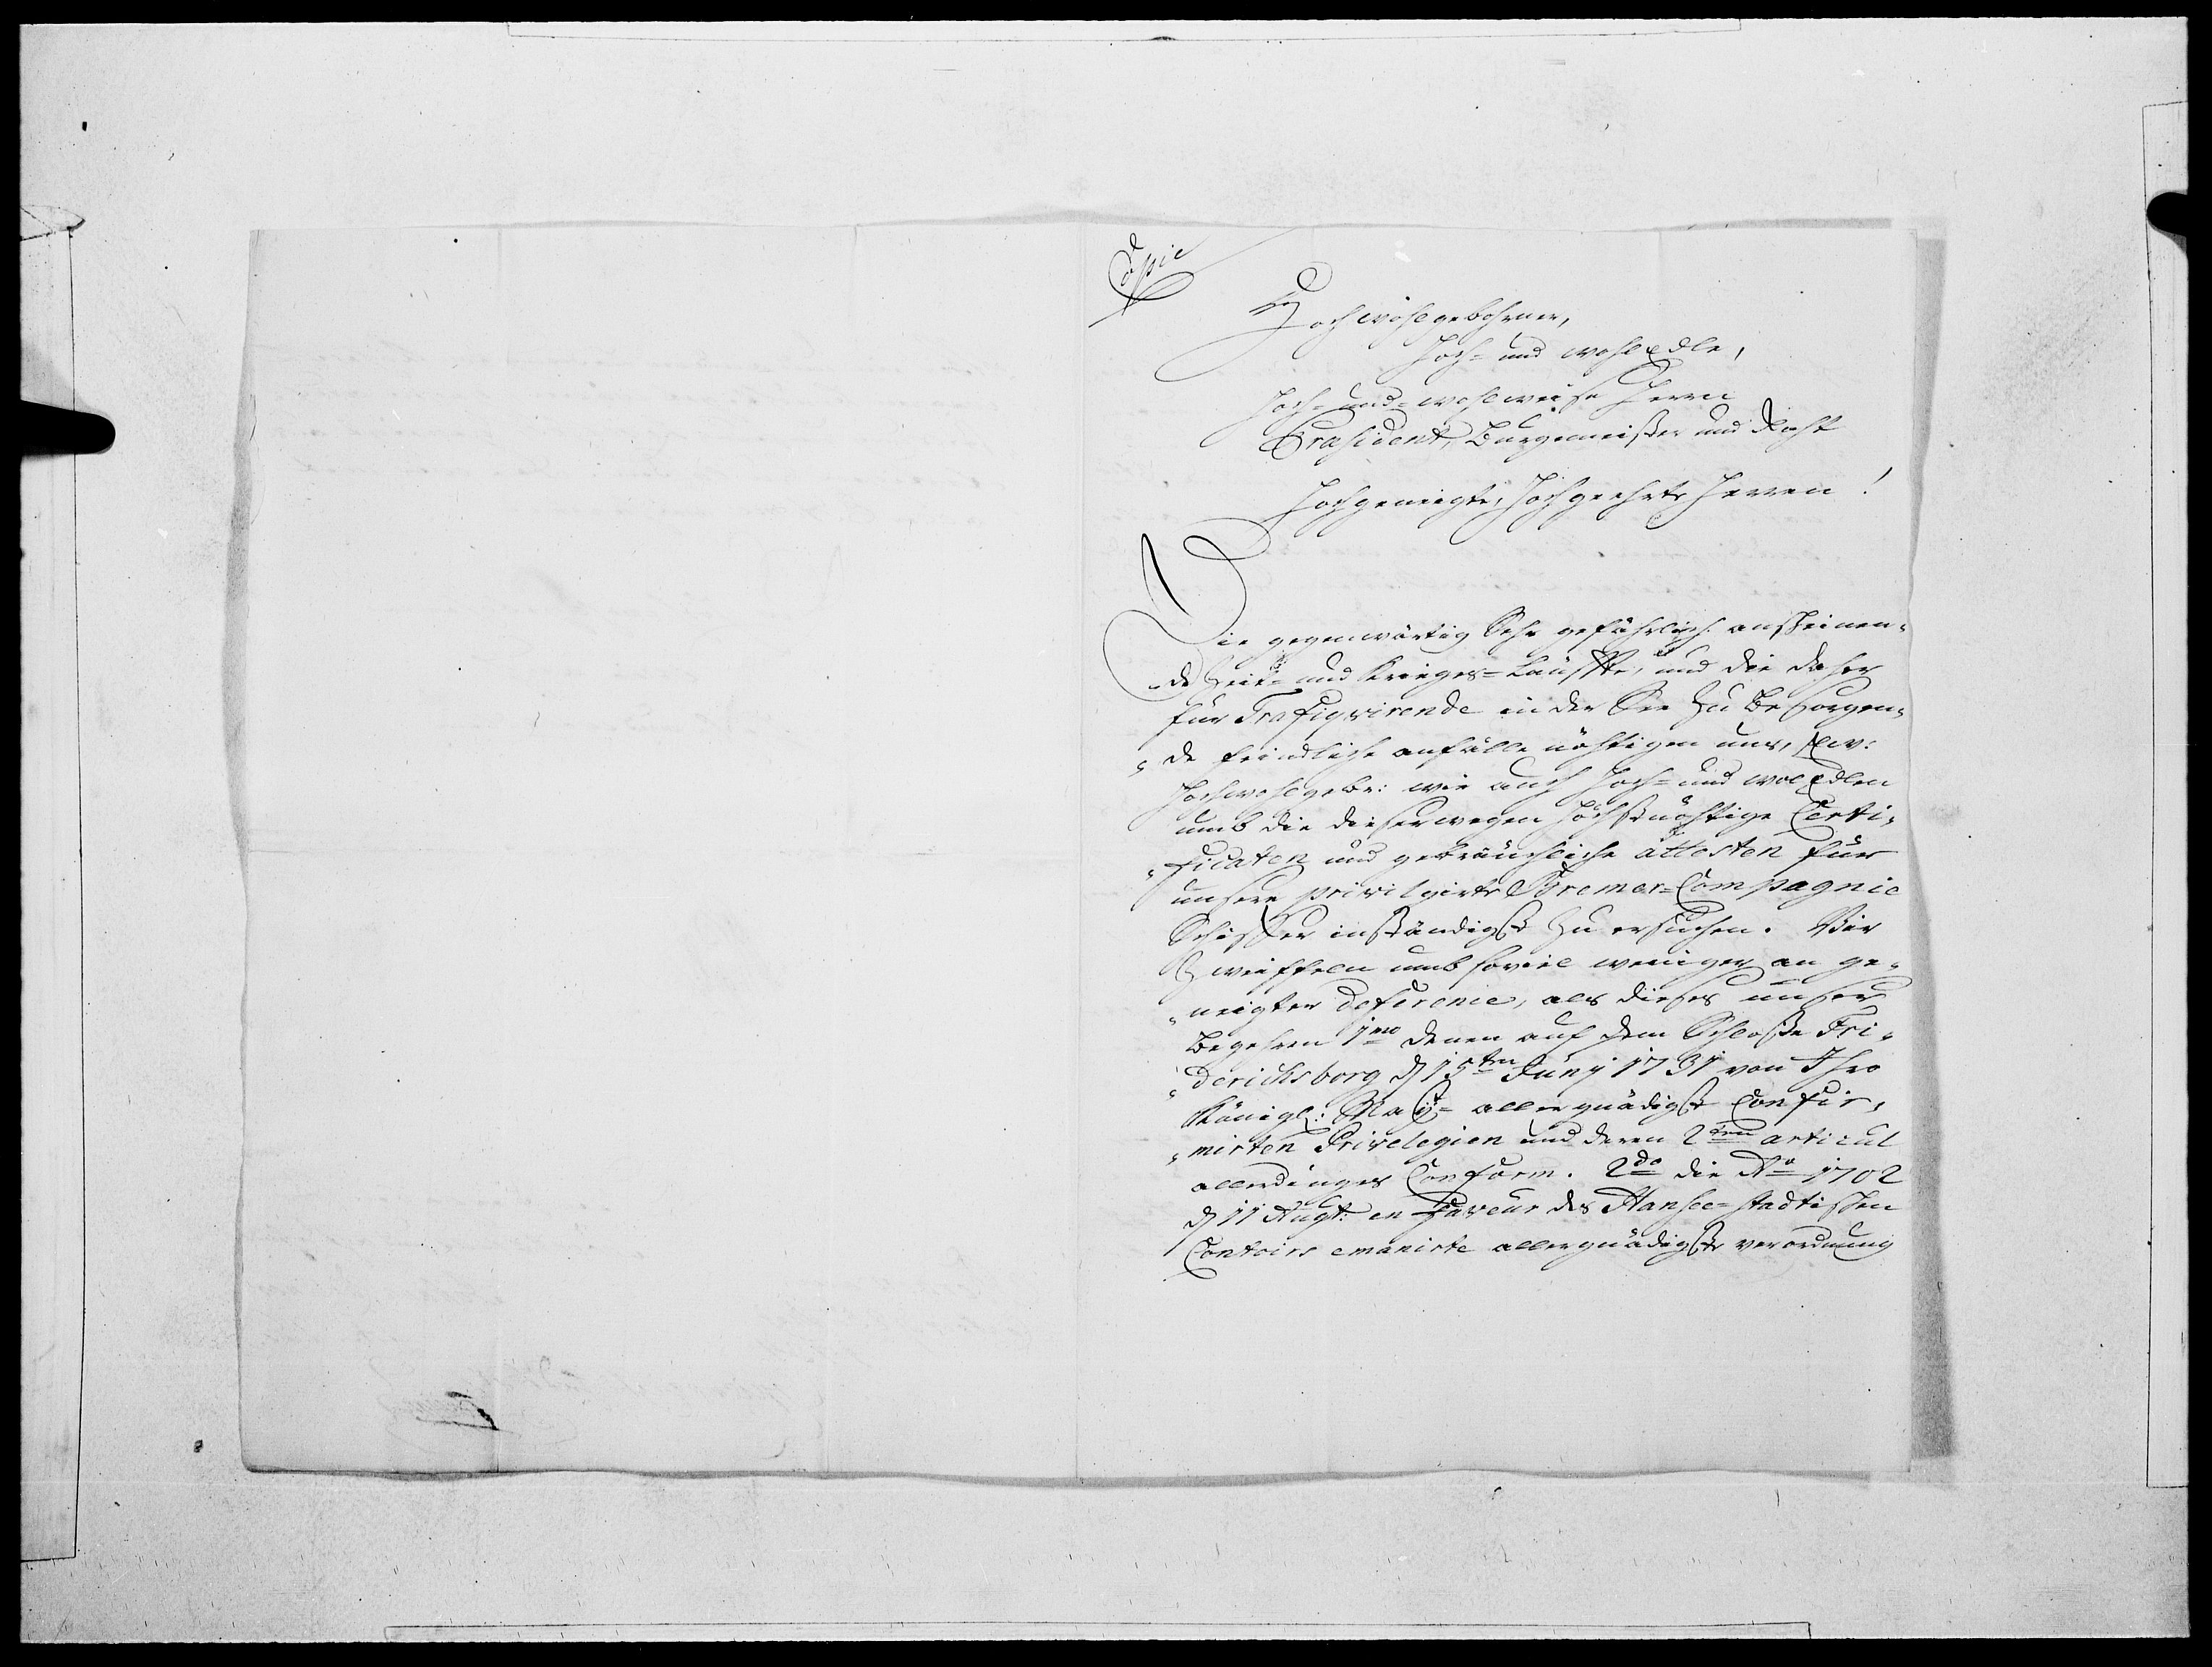 Copie
Hochwohlgebohrner,
Hoch- und wohlEdle,
Hoch- und wohlweise Herrn
Præsident, Burgemeister und Raht
Hochgeneigte, Hochgeehrte Herren!
Die gegenwärtig Sehr gefährlich ansheinen-
-de Zeit- und Krieges-Läuffte, und die daher
für Trafiqvirende in der See zu Besorgen-
-de feindliche anfälle nöhtigen uns, Ew:
Hochwohlgebr: wie auch Hoch- und wolEdlen
umb die dieserwegen höchstnöhtige Certi-
-ficaten und gebräuchliche attesten für
unsere privilgirte Bremer-Compagnie
Schiffer inständigst zu ersuchen. Wir
Zweiffeln umb soviel weniger an ge-
-neigter deference, als dieses unser
Begehren 1mo denen auf dem Schloße Fri-
-dericksborg d 15ten Junij 1731 von Ihro
Königl: Mayt- allergnädigst Confir-
-mirten Privelegien und deren 2ten articul
allerdinges Conform. 2do die Ao 1702
d 11 Augt: en faveur des Hansee-stadtishen
Contoirs emanirte allergnädigste verordnung